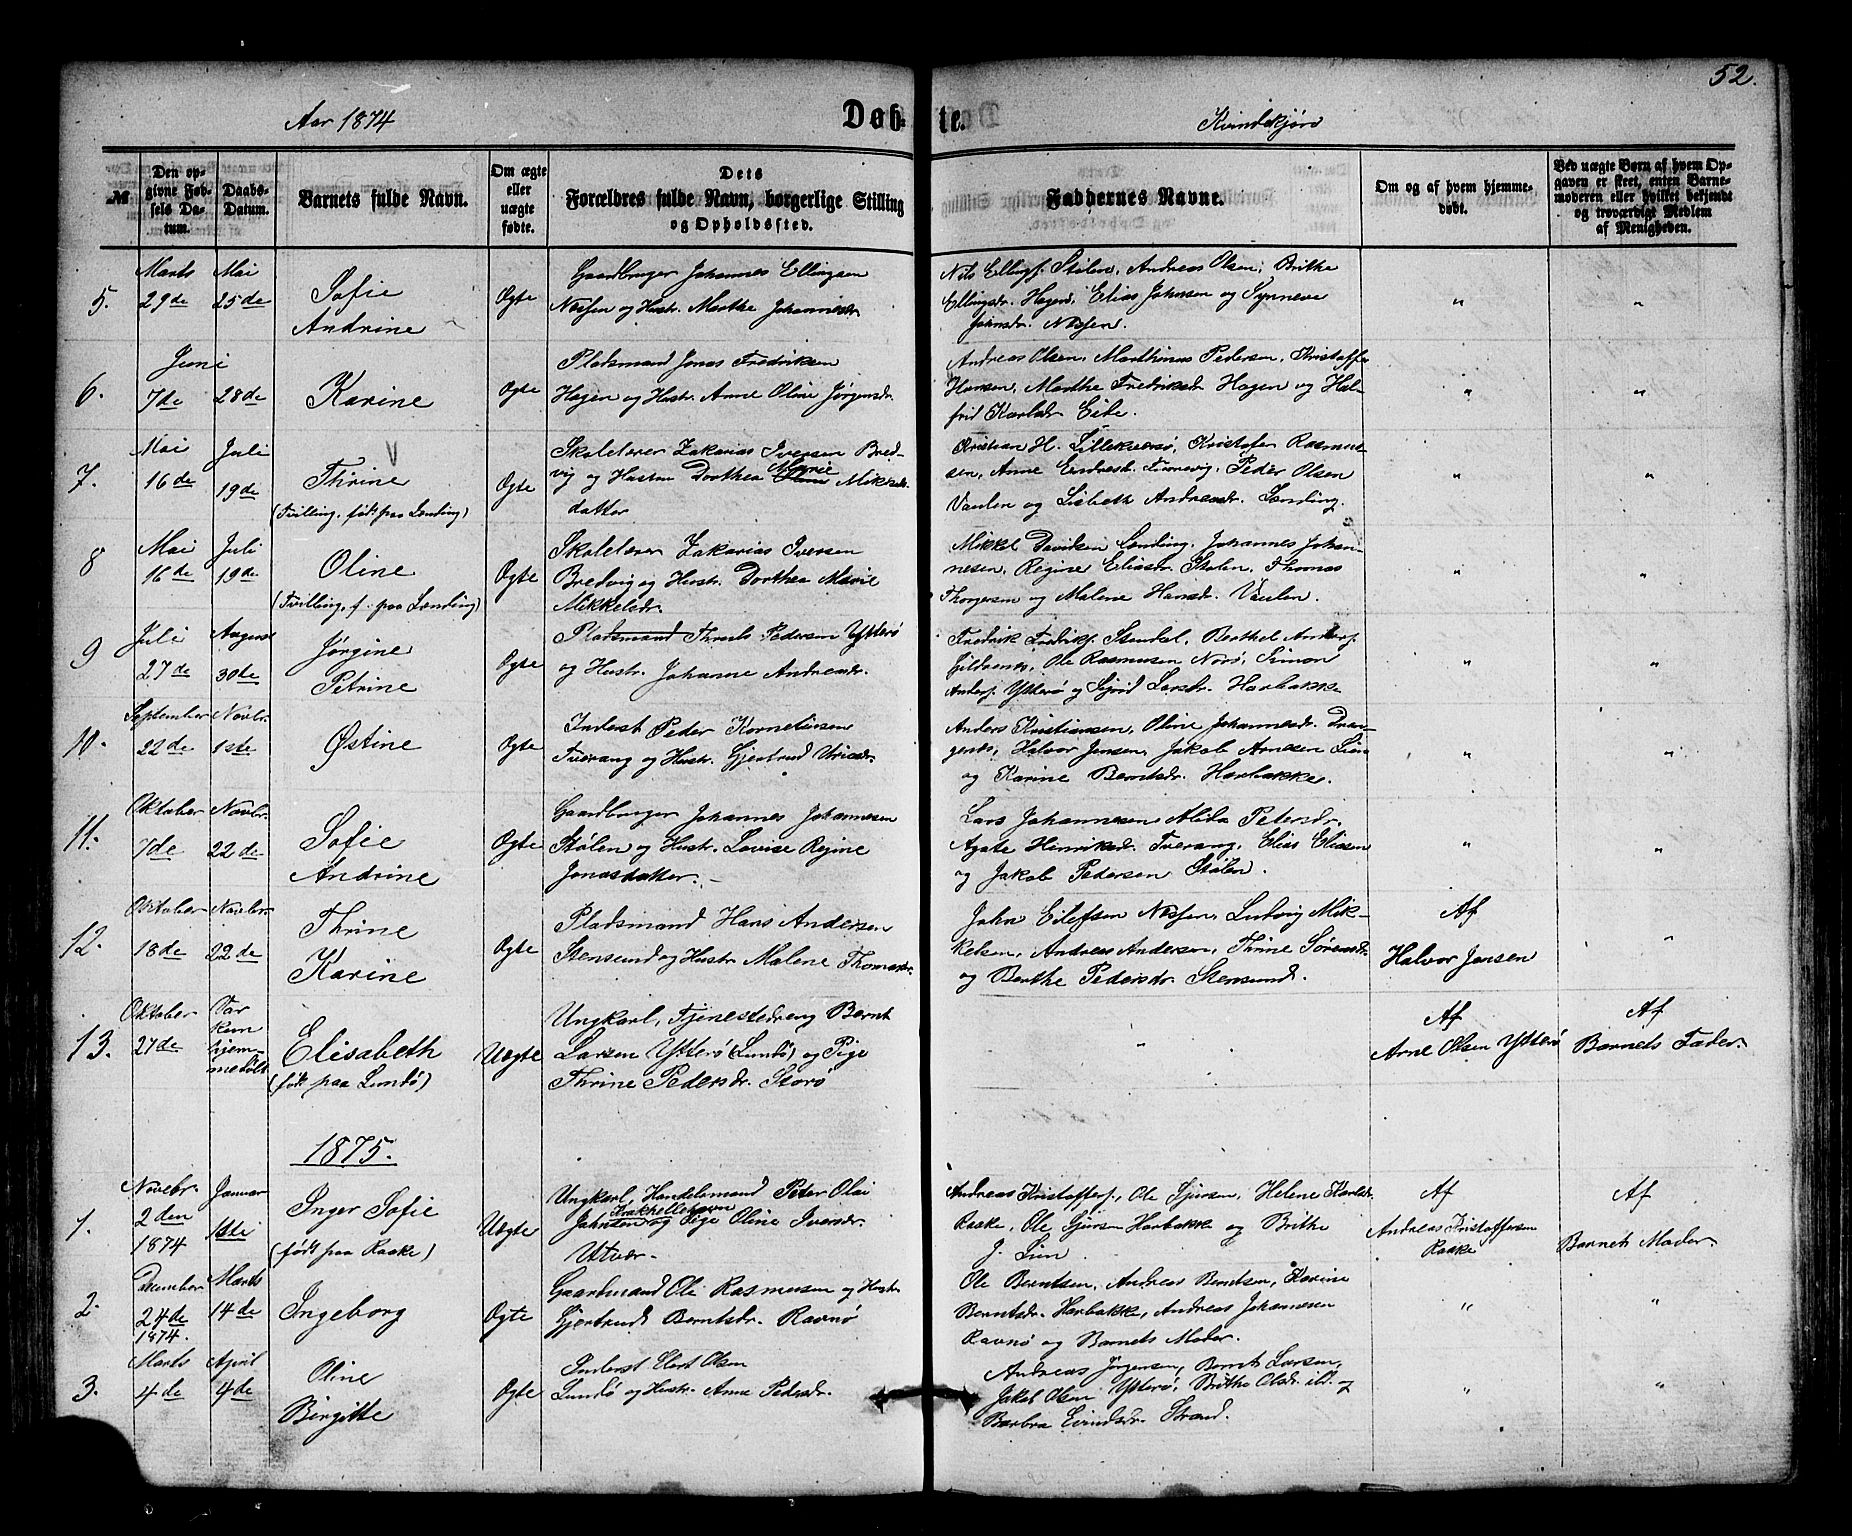 52.
Aar 1874 Døbte. Kvindekjøn
№
Den opgivne Fødsels Datum.
Daabs-Datum.
Barnets fulde Navn.
Om ægte eller uægte fødte.
Dets Forældres fulde Navn, borgerlige Stilling og Opholdssted.
Faddernes Navne.
Om og af hvem hjemmedøbt.
Ved uægte Børn af hvem Opgaven er skeet, enten Barnemoderen eller hvilket bekjendt og troværdigt Medlem af Menigheden.
5. Marts 29de Mai 25de
Sofie
Andrine
Ægte
Gaardbruger Johannes Ellingsen
Nessen og Hustr. Marthe Johannesdr.
Nils Ellings. Stølen, Andreas Olsen, Brithe
Ellingsdr. Hagen, Elias Johnsen og Synneve
Johnsdr. Nessen.
" "
6. Juni 7de 28de
Karine
Ægte
Pladsmand Jonas Fredriksen
Hagen og Hustr. Anne Oline Jørgensdr.
Andreas Olsen, Marthinus Pedersen, Kristoffer
Hansen, Marthe Fredriksdr. Hagen og Hal-
frid Karlsdr. Eide.
" "
7. Mai 16de Juli 19de
Thrine
(Tvilling, født paa Lending)
Ægte
Skolelærer Zakarias Iversen Bred-
vig og Hustru Dorthea Marie Mikkels-
datter
Kristian H. Lillekverø, Kristofer Rasmus-
sen, Anne Peder Olsen
Vaulen og Lisbeth Andreasdr. Lending.
" "
8 Mai 16de Juli 19de
Oline
(Tvilling, f. paa Lending)
Ægte
Skolelærer Zakarias Iversen
Bredvig og Hustr. Dorthea Marie
Mikkelsdr.
Mikkel Davidsen Lending, Johannes Johan-
nesen, Regine Eliasdr. Stølen, Thomas
Thorgersen og Malene Hansdr. Vaulen.
" "
9 Juli 27de August 30de
Jørgine
Petrine
Ægte
Pladsmand Thruls Pedersen Ytterø
og Hustr. Johanne Andreasdr.
Fredrik Fredriks. Stendal, Berthel Anders.
Gildrenes, Ole Rasmusen Norø, Simon
Anders. Ytterø og Sigrid Larsdr. Harbakke
" "
10. September 22de Novbr. 1ste
Østine
Ægte
Inderst Peder Korneliusen
Tverang og Hustr. Gjertrud Uriasdr.
Anders Kristiansen, Oline Johannesdr. Dran-
genes, Halvor Jensen, Jakob Arnesen Lien
og Karine Berntsdr. Harbakke.
" "
11. Oktober 7de Novbr. 22de
Sofie
Andrine
Ægte
Gaardbruger Johannes Johannesen
Stølen og Hustr. Lovise Regine
Jonasdatter. -
Lars Johannesen, Alida Petersdr.
Agate Henriksdr. Tverang, Elias Eliasen
og Jakob Pedersen Stølen.
" "
12. Oktober 18de Novbr. 22de
Thrine
Karine
Ægte
Pladsmand Hans Andersen
Stensund og Hustr. Malene Thomasdr.
John Eilefsen Nessen, Ludvig Mik-
kelsen, Andreas Andersen, Thrine Sørensdr.
og Berthe Pedersdr. Stensund.
Af
Halvor Jensen
"
13. Oktober 27de Var kun hjemmedøbt
Elisabeth
(født paa Lundø)
Uægte
Ungkarl, Tjenestedreng Bernt
Larsen Ytterø (Lundø) og Pige
Thrine Pedersdr. Storø
"
Af
Arne Olsen Ytterø
Af
Barnets Fader.
1875.
1. Novbr. 2den 1874 Januar 1ste
Inger Sofie
(født paa Raake)
Uægte
Ungkarl, Handelsmand Peter Olai
Johnsen Krakhellehavn og Pige Oline Iversdr.
Utvær.
Andreas Kristoffers., Ole Sjursen, Helene Karlsdr.
Raake, Ole Sjurs. Harbakke og Brithe
J. Lien
Af
Andreas Kristoffersen
Raake
Af
Barnets Moder.
2. December 24de 1874. Marts 14de
Ingeborg
Ægte
Gaardmand Ole Rasmusen og Hustr.
Gjertrud Berntsdr. Ravnø
Ole Berntsen, Andreas Berntsen, Karine
Berntsdr. Harbakke, Andreas Johannesen
Ravnø og Barnets Moder.
" "
3. Marts 4de April 4de
Oline
Birgitte
Ægte
Inderst Elert Olsen
Lundø og Hustr. Anne Pedersdr.
Andreas Jørgensen, Bernt Larsen,
Jakob Olsen Ytterø, Brithe Olsdr. ibd. og
Barbra Eivindsdr. Strand.
" "